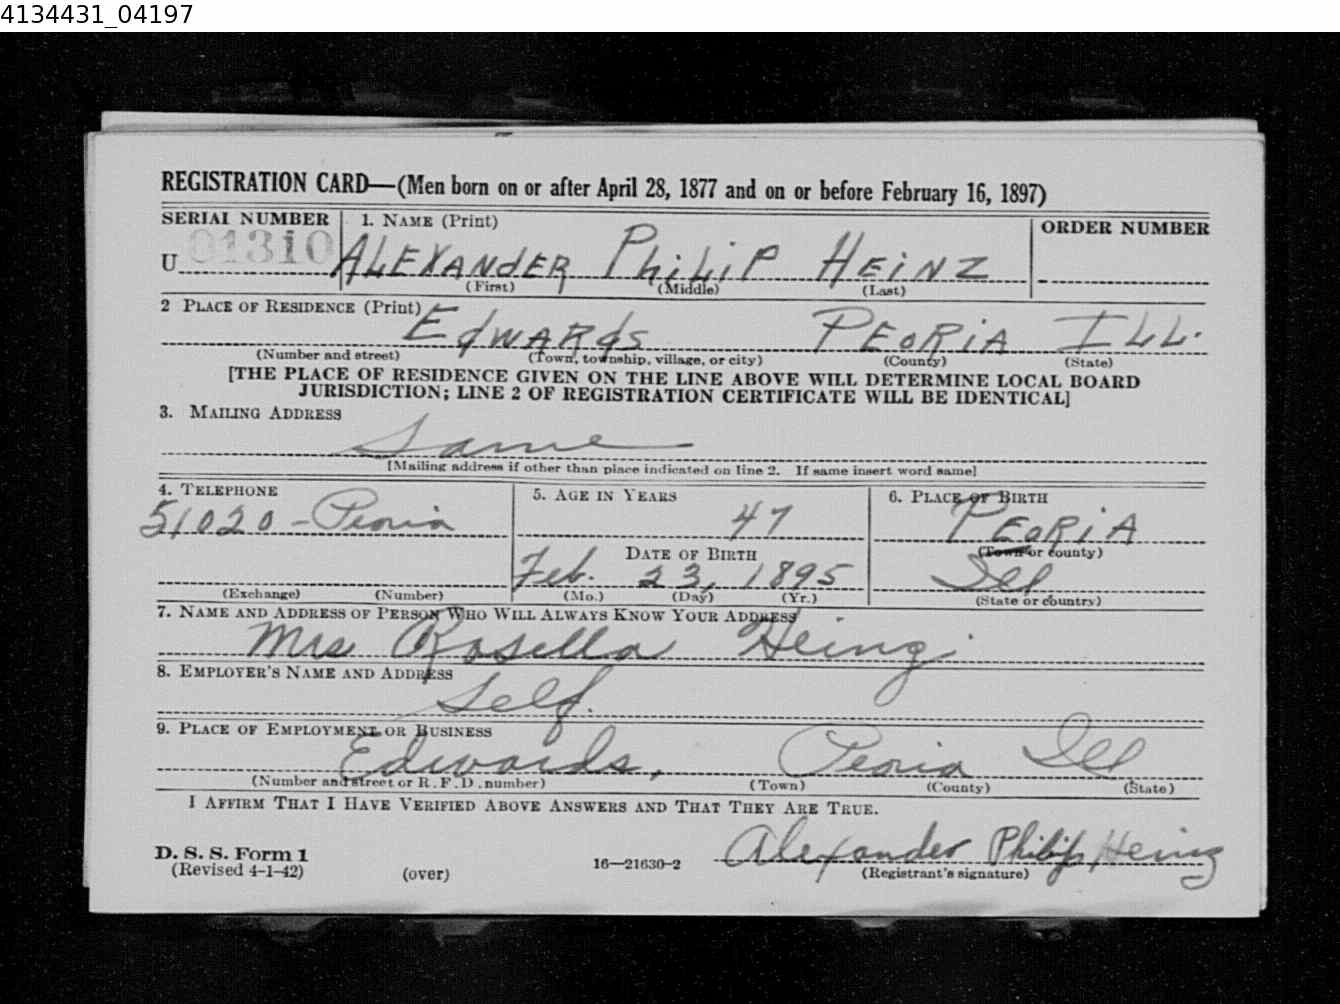 4134431_04197
REGISTRATION CARD—(Men born on or after April 28, 1877 and on or before February 16, 1897)
SERIAL NUMBER 1. NAME (Print) ORDER NUMBER
U 01310 ALEXANDER PHILIP HEINZ
(First) (Middle) (Last)
2 PLACE OF RESIDENCE (Print)
EdWARds PEORIA ILL.
(Number and street) (Town, township, village, or city) (County) (State)
[THE PLACE OF RESIDENCE GIVEN ON THE LINE ABOVE WILL DETERMINE LOCAL BOARD
JURISDICTION; LINE 2 OF REGISTRATION CERTIFICATE WILL BE IDENTICAL]
3. MAILING ADDRESS
Same
[Mailing address if other than place indicated on line 2. If same insert word same]
4. TELEPHONE 5. AGE IN YEARS 6. PLACE OF BIRTH
51020 - Peoria 47 PEORIA
DATE OF BIRTH (Town or county)
Feb. 23, 1895 Ill.
(Exchange) (Number) (Mo.) (Day) (Yr.) (State or country)
7. NAME AND ADDRESS OF PERSON WHO WILL ALWAYS KNOW YOUR ADDRESS
Mrs Rosella Heinz.
8. EMPLOYER'S NAME AND ADDRESS
Self.
9. PLACE OF EMPLOYMENT OR BUSINESS
Edwards, Peoria Ill
(Number and street or R. F. D. number) (Town) (County) (State)
I AFFIRM THAT I HAVE VERIFIED ABOVE ANSWERS AND THAT THEY ARE TRUE.
Alexander Philip Heinz
D. S. S. Form 1
(Revised 4-1-42) (over) 16—21630-2 (Registrant's signature)